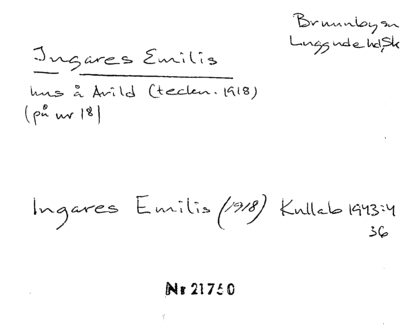 Brunnby sn
Luggude hd, Sk
Ingares Emilis
hus å Arild (teckn. 1918)
(på nr 18)
Ingares Emilis (1918) Kullab 1943:4
36
Nr 21750